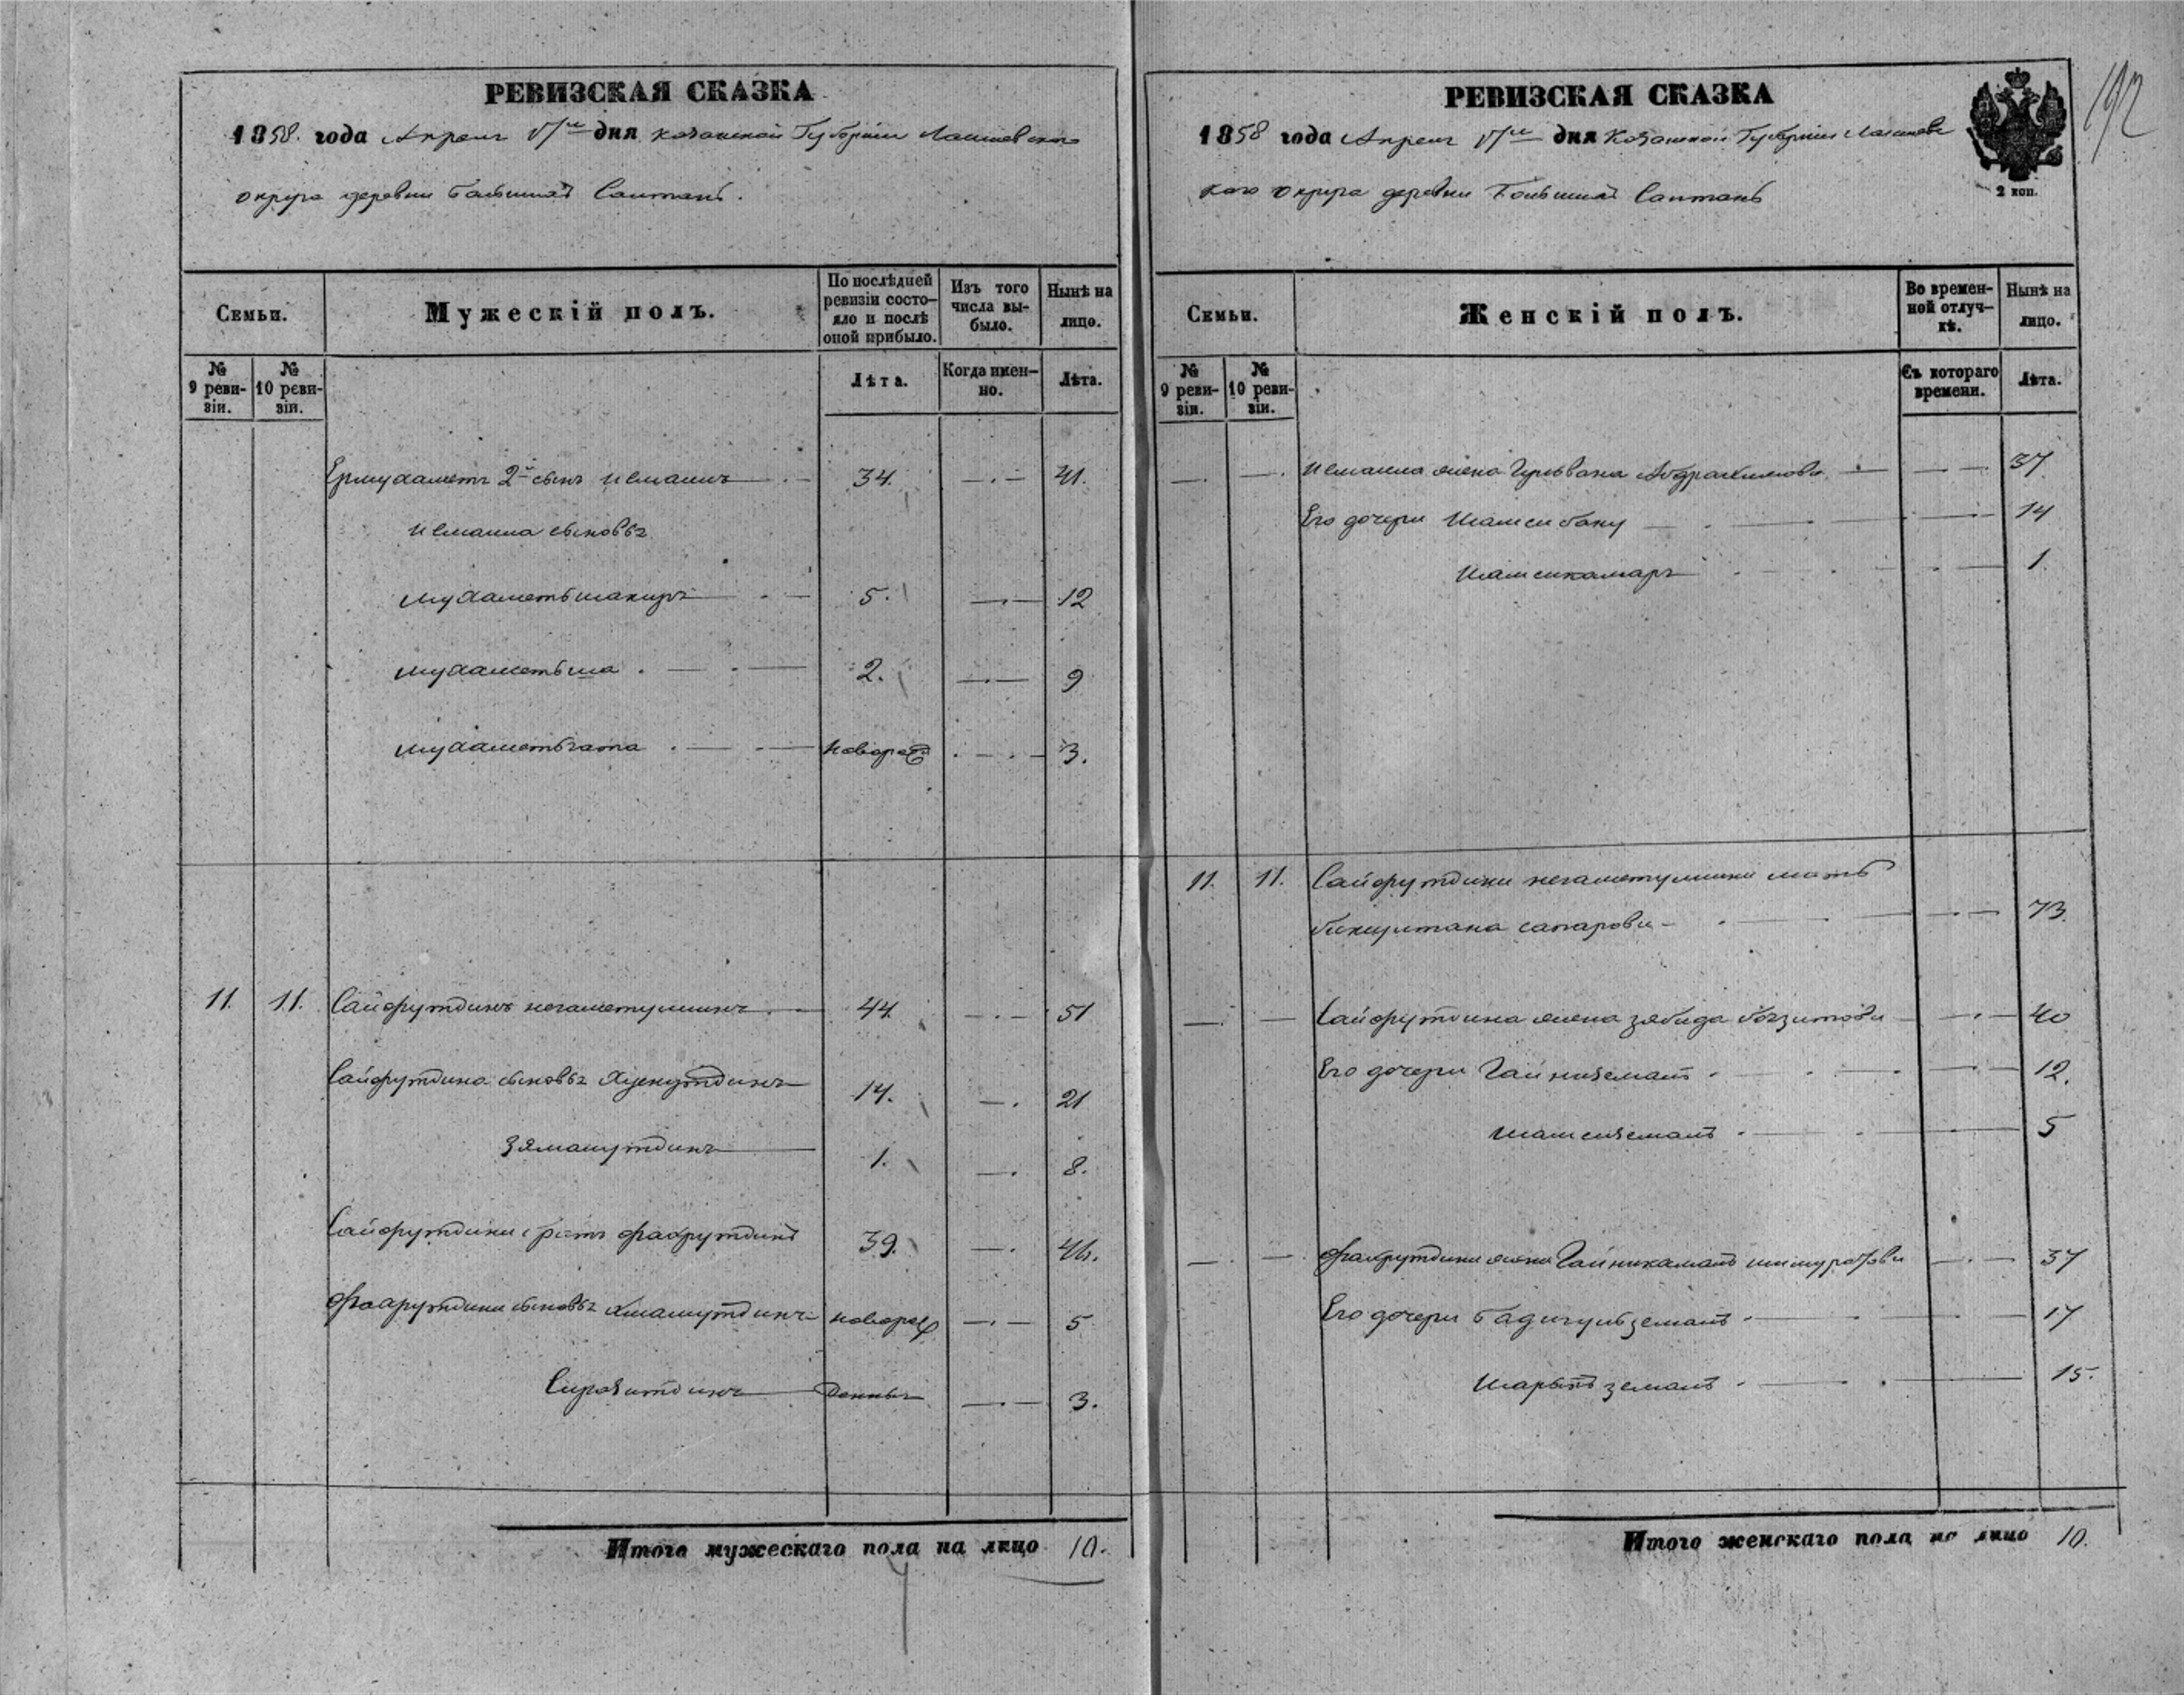 РЕВИЗСКАЯ СКАЗКА
1858. года Апреля дня Казанской Губернии Лаишевскаго
округа деревни Большой Салтанъ.
Семьи.
Мужескій полъ.
По послѣдней ревизіи состояло и послѣ оной прибыло.
Изъ того числа выбыло.
Нынѣ на лицо.
№ 9 ревизіи.
№ 10 ревизіи.
Лѣта.
Когда именно.
Лѣта.
Ермухаметъ 2й сынъ Исмаилъ 34. 41.
Исмаила сыновья
Мухаметьшакиръ 5. 12
Мухаметьша 2. 9
Мухаметьгата новорожд 3.
11. 11. Сайфутдинъ 44 51
Сайфутдина сыновья Хуснутдинъ 14. 21
Зямалутдинъ 1. 8.
Сайфутдина братъ Фахрутдинъ 39. 46.
Фахрутдина сыновья новорож 5
Сиразитдинъ денные 3.
Итого мужескаго пола на лицо 10.
РЕВИЗСКАЯ СКАЗКА
1858 года Апреля дня Казанской Губерніи Лаишевс
каго округа деревни Большой Салтанъ
2 коп.
192
Семьи.
Женскій полъ.
Во временной отлучкѣ.
Нынѣ на лицо.
№ 9 ревизіи.
№ 10 ревизіи.
Съ котораго времени.
Лѣта.
Исмаила жена Абдрахимова 37
Его дочери Шамсибану 14
Шамсикамаръ 1.
11. 11. Сайфутдина мать
сапарова 73.
Сайфутдина жена Зябида 40
Его дочери Гайниземалъ 12.
Шамсиземалъ 5
Фахрутдина жена Гайникамалъ 37
Его дочери Бадигульземалъ 17
земалъ 15.
Итого женскаго пола на лицо 10.